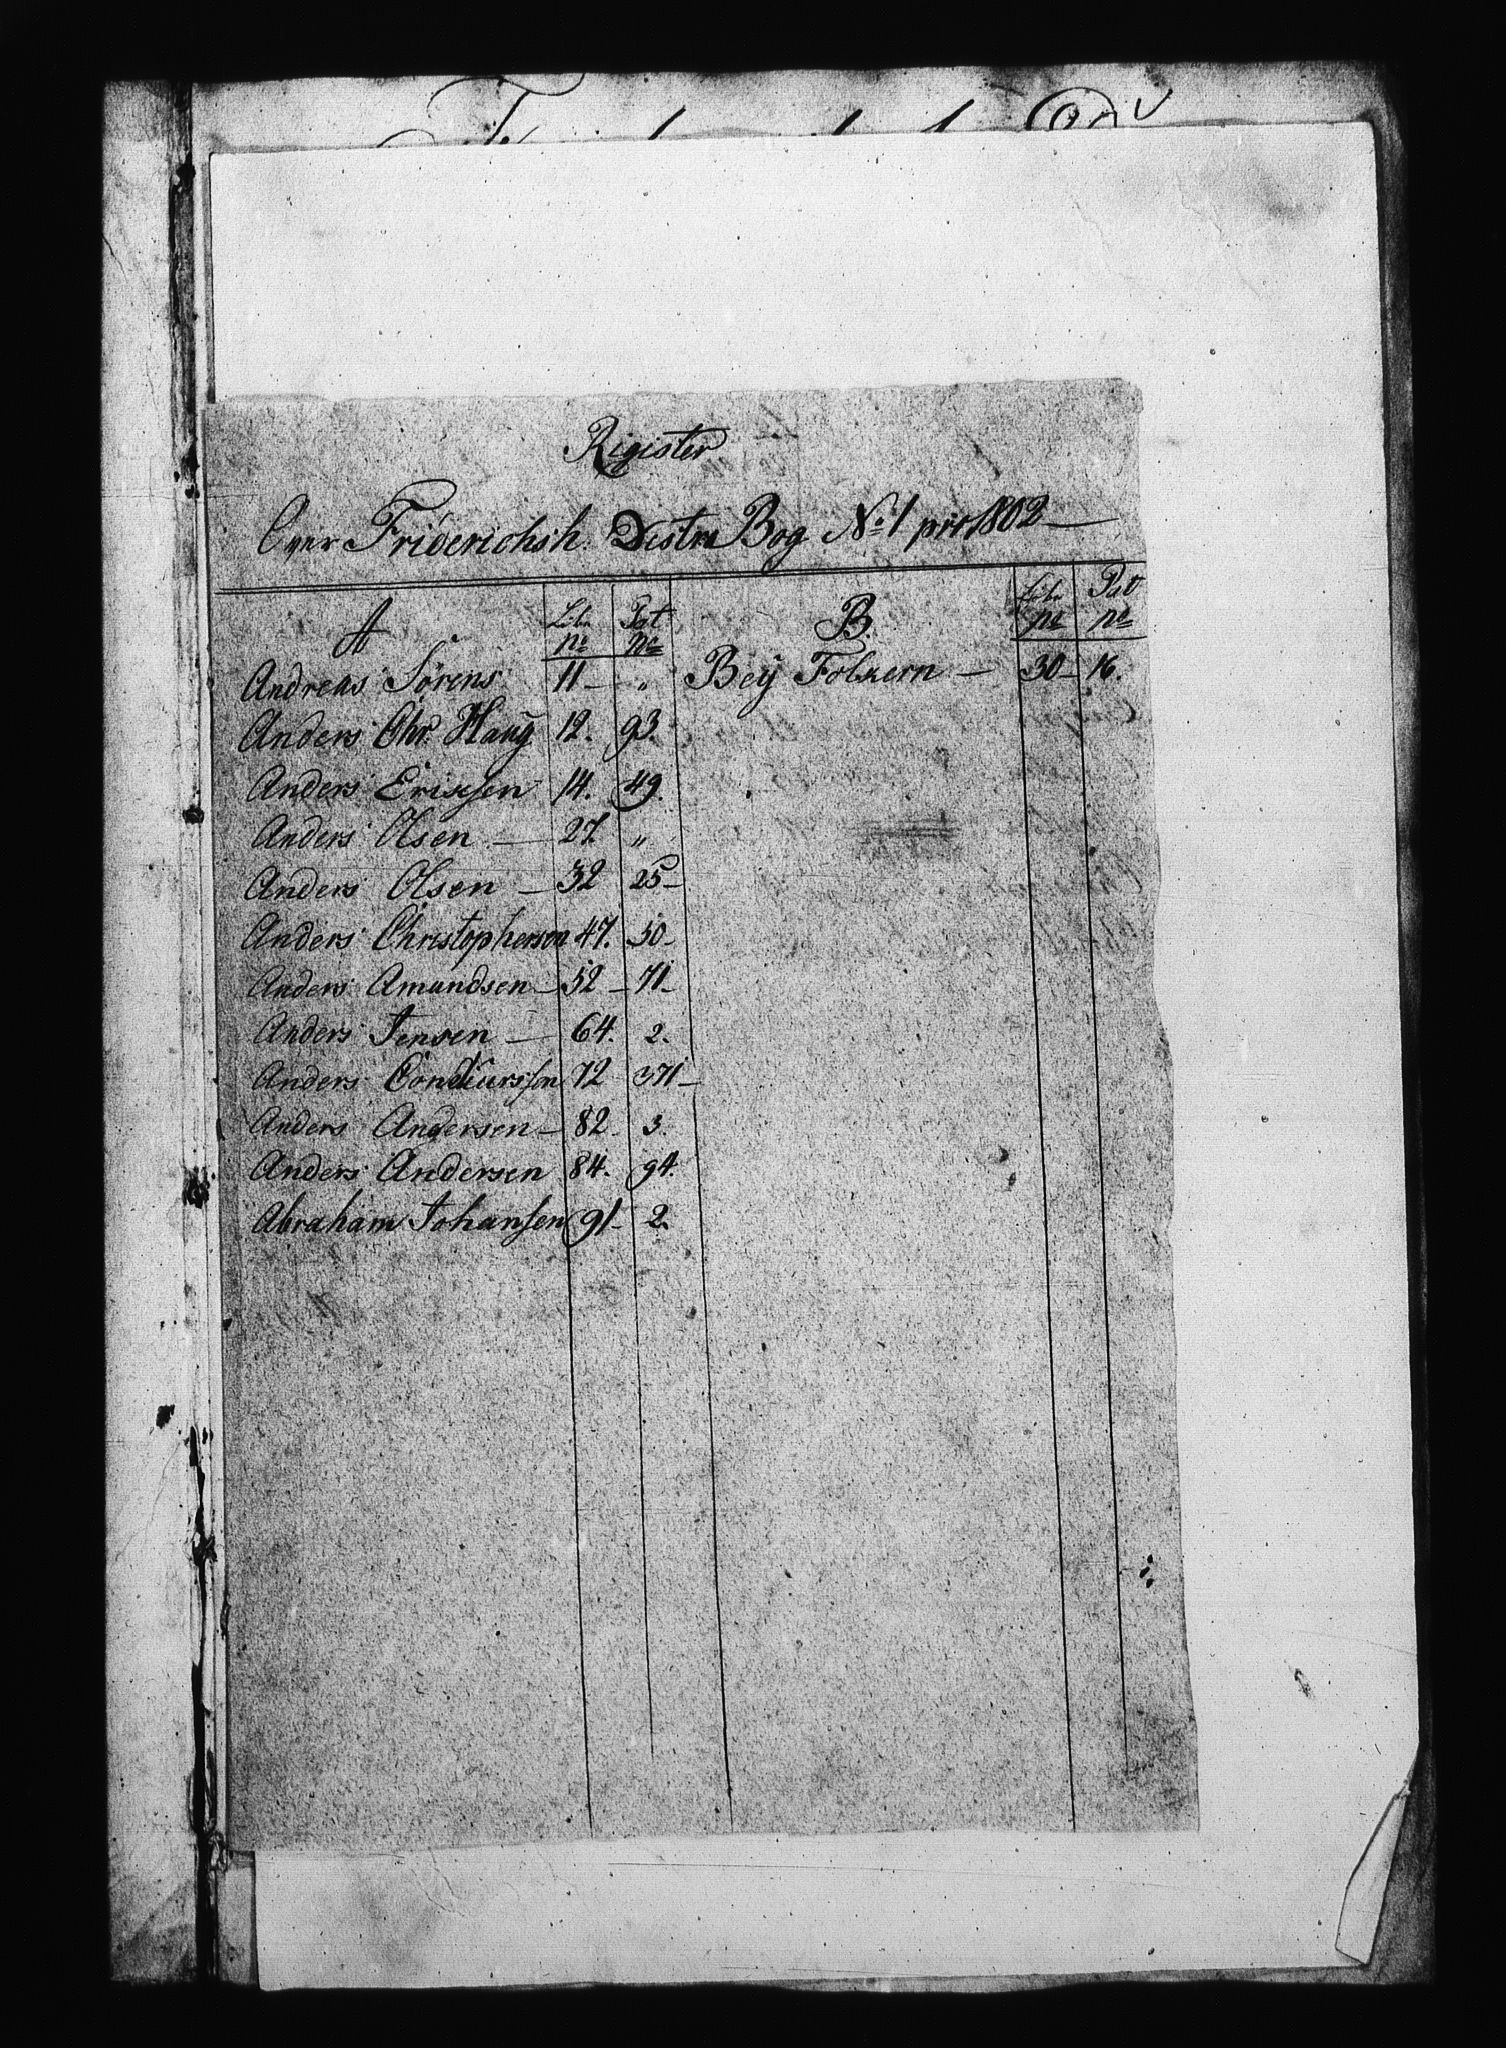 Rigister
Over Friderichsh. Distr Bog No 1 pro 1802 —
A Libr no Pat no B. Libr no Pat no
Andreas Sörens 11 — „ Bey Folkern — 30 — 16.
Anders Chr. Haug 12. 93.
Anders Erixsen 14. 49.
Anders Olsen — 27. „
Anders Olsen — 32 25 —
Anders Christophersen 47. 50 —
Anders Amundsen — 52 — 71 —
Anders Jensen — 64. 2.
Anders 72 371 —
Anders Andersen — 82 3.
Anders Andersen 84. 94.
Abraham Johansen 91 — 2.